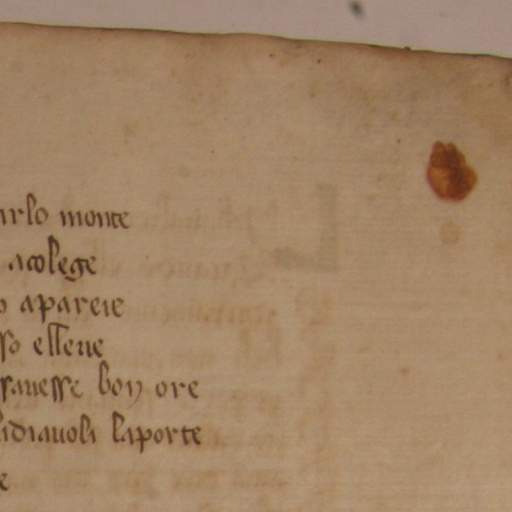 arlo monte
acolege
o apareie
sso elleue
sauesse bon ore
lidiauoli laporte
e